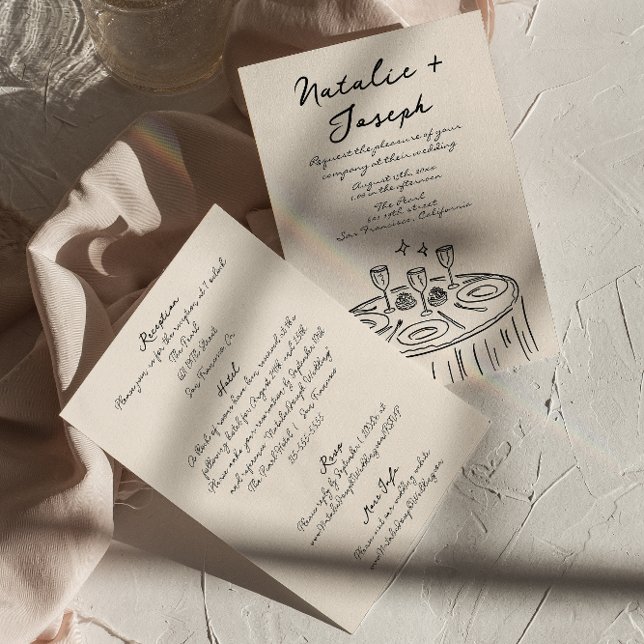 Natalie +
Joseph
Request the pleasure of your
company at their wedding
August 12th, 20xx
5:00 in the afternoon
The Pearl
601 19th street
San Francisco, California
Reception
Please join us for the reception at 7 o'clock
The Pearl
601 19th Street
San Francisco Ca
Hotel
A block of rooms have been reserved at the
following hotel for August 24th and 25th
Please make your reservation by September 10th
and reference Natalie&Joseph Wedding
The Pearl Hotel | San Francisco
115-555-5555
Rsvp
Please reply by September 1, 20xx at
www.Natalie&JosephWedding.com/RSVP
More Info
Please visit our wedding website
www.Natalie&JosephWedding.com